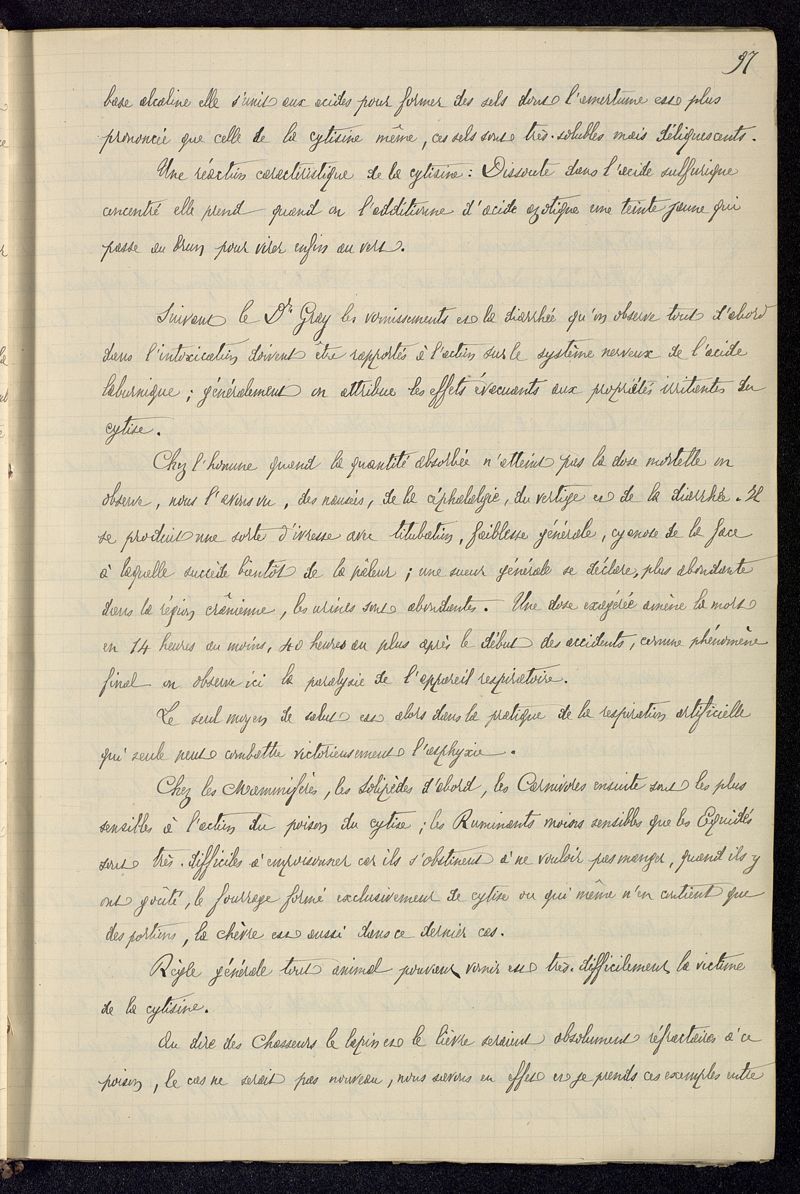 97
base alcaline elle s'unit aux acides pour former des sels dont l'amertume est plus
prononcée que celle de la cytisine même, ces sels sont très-solubles mais déliquescents.
Une réaction caractéristique de la cytisine : Dissoute dans l'acide sulfurique
concentré elle prend quand on l'additionne d'acide azotique une teinte jaune qui
passe au brun pour virer enfin au vert.
Suivant le Dr Gray les vomissements et la diarrhée qu'on observe tout d'abord
dans l'intoxication doivent être rapportés à l'action sur le système nerveux de l'acide
laburnique ; généralement on attribue les effets évacuants aux propriétés irritantes du
cytise.
Chez l'homme quand la quantité absorbée n'atteint pas la dose mortelle on
observe, nous l'avons vu, des nausées, de la céphalalgie, du vertige et de la diarrhée. Il
se produit une sorte d'ivresse avec titubation, faiblesse générale, cyanose de la face
à laquelle succède bientôt de la pâleur ; une sueur générale se déclare, plus abondante
dans la région crânienne, les urines sont abondantes. Une dose exagérée amène la mort
en 14 heures au moins, 40 heures au plus après le début des accidents, comme phénomène
final on observe ici la paralysie de l'appareil respiratoire.
Le seul moyen de salut est alors dans la pratique de la respiration artificielle
qui seule peut combattre victorieusement l'asphyxie.
Chez les Mammifères, les Solipèdes d'abord, les Carnivores ensuite sont les plus
sensibles à l'action du poison du cytise ; les Ruminants moins sensibles que les Equidés
sont très-difficiles à empoisonner car ils s'obstinent à ne vouloir pas manger, quand ils y
ont goûté, le fourrage formé exclusivement de cytise ou qui même n'en contient que
des portions, la chèvre est aussi dans ce dernier cas.
Règle générale tout animal pouvant vomir est très-difficilement la victime
de la cytisine.
Au dire des Chasseurs le lapin et le lièvre seraient absolument réfractaires à ce
poison, le cas ne serait pas nouveau, nous savons en effet et je prends ces exemples entre